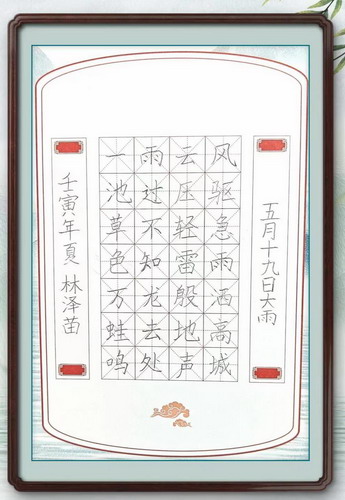 五月十九日大雨
风驱急雨洒高城
云压轻雷殷地声
雨过不知龙去处
一池草色万蛙鸣
壬寅年夏 林泽苗